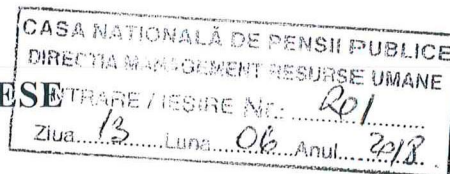 CASA NAȚIONALĂ DE PENSII PUBLICE
DIRECȚIA MANAGEMENT RESURSE UMANE
ESE
INTRARE / IESIRE Nr: 201
Ziua 13 Luna 06 Anul 2018